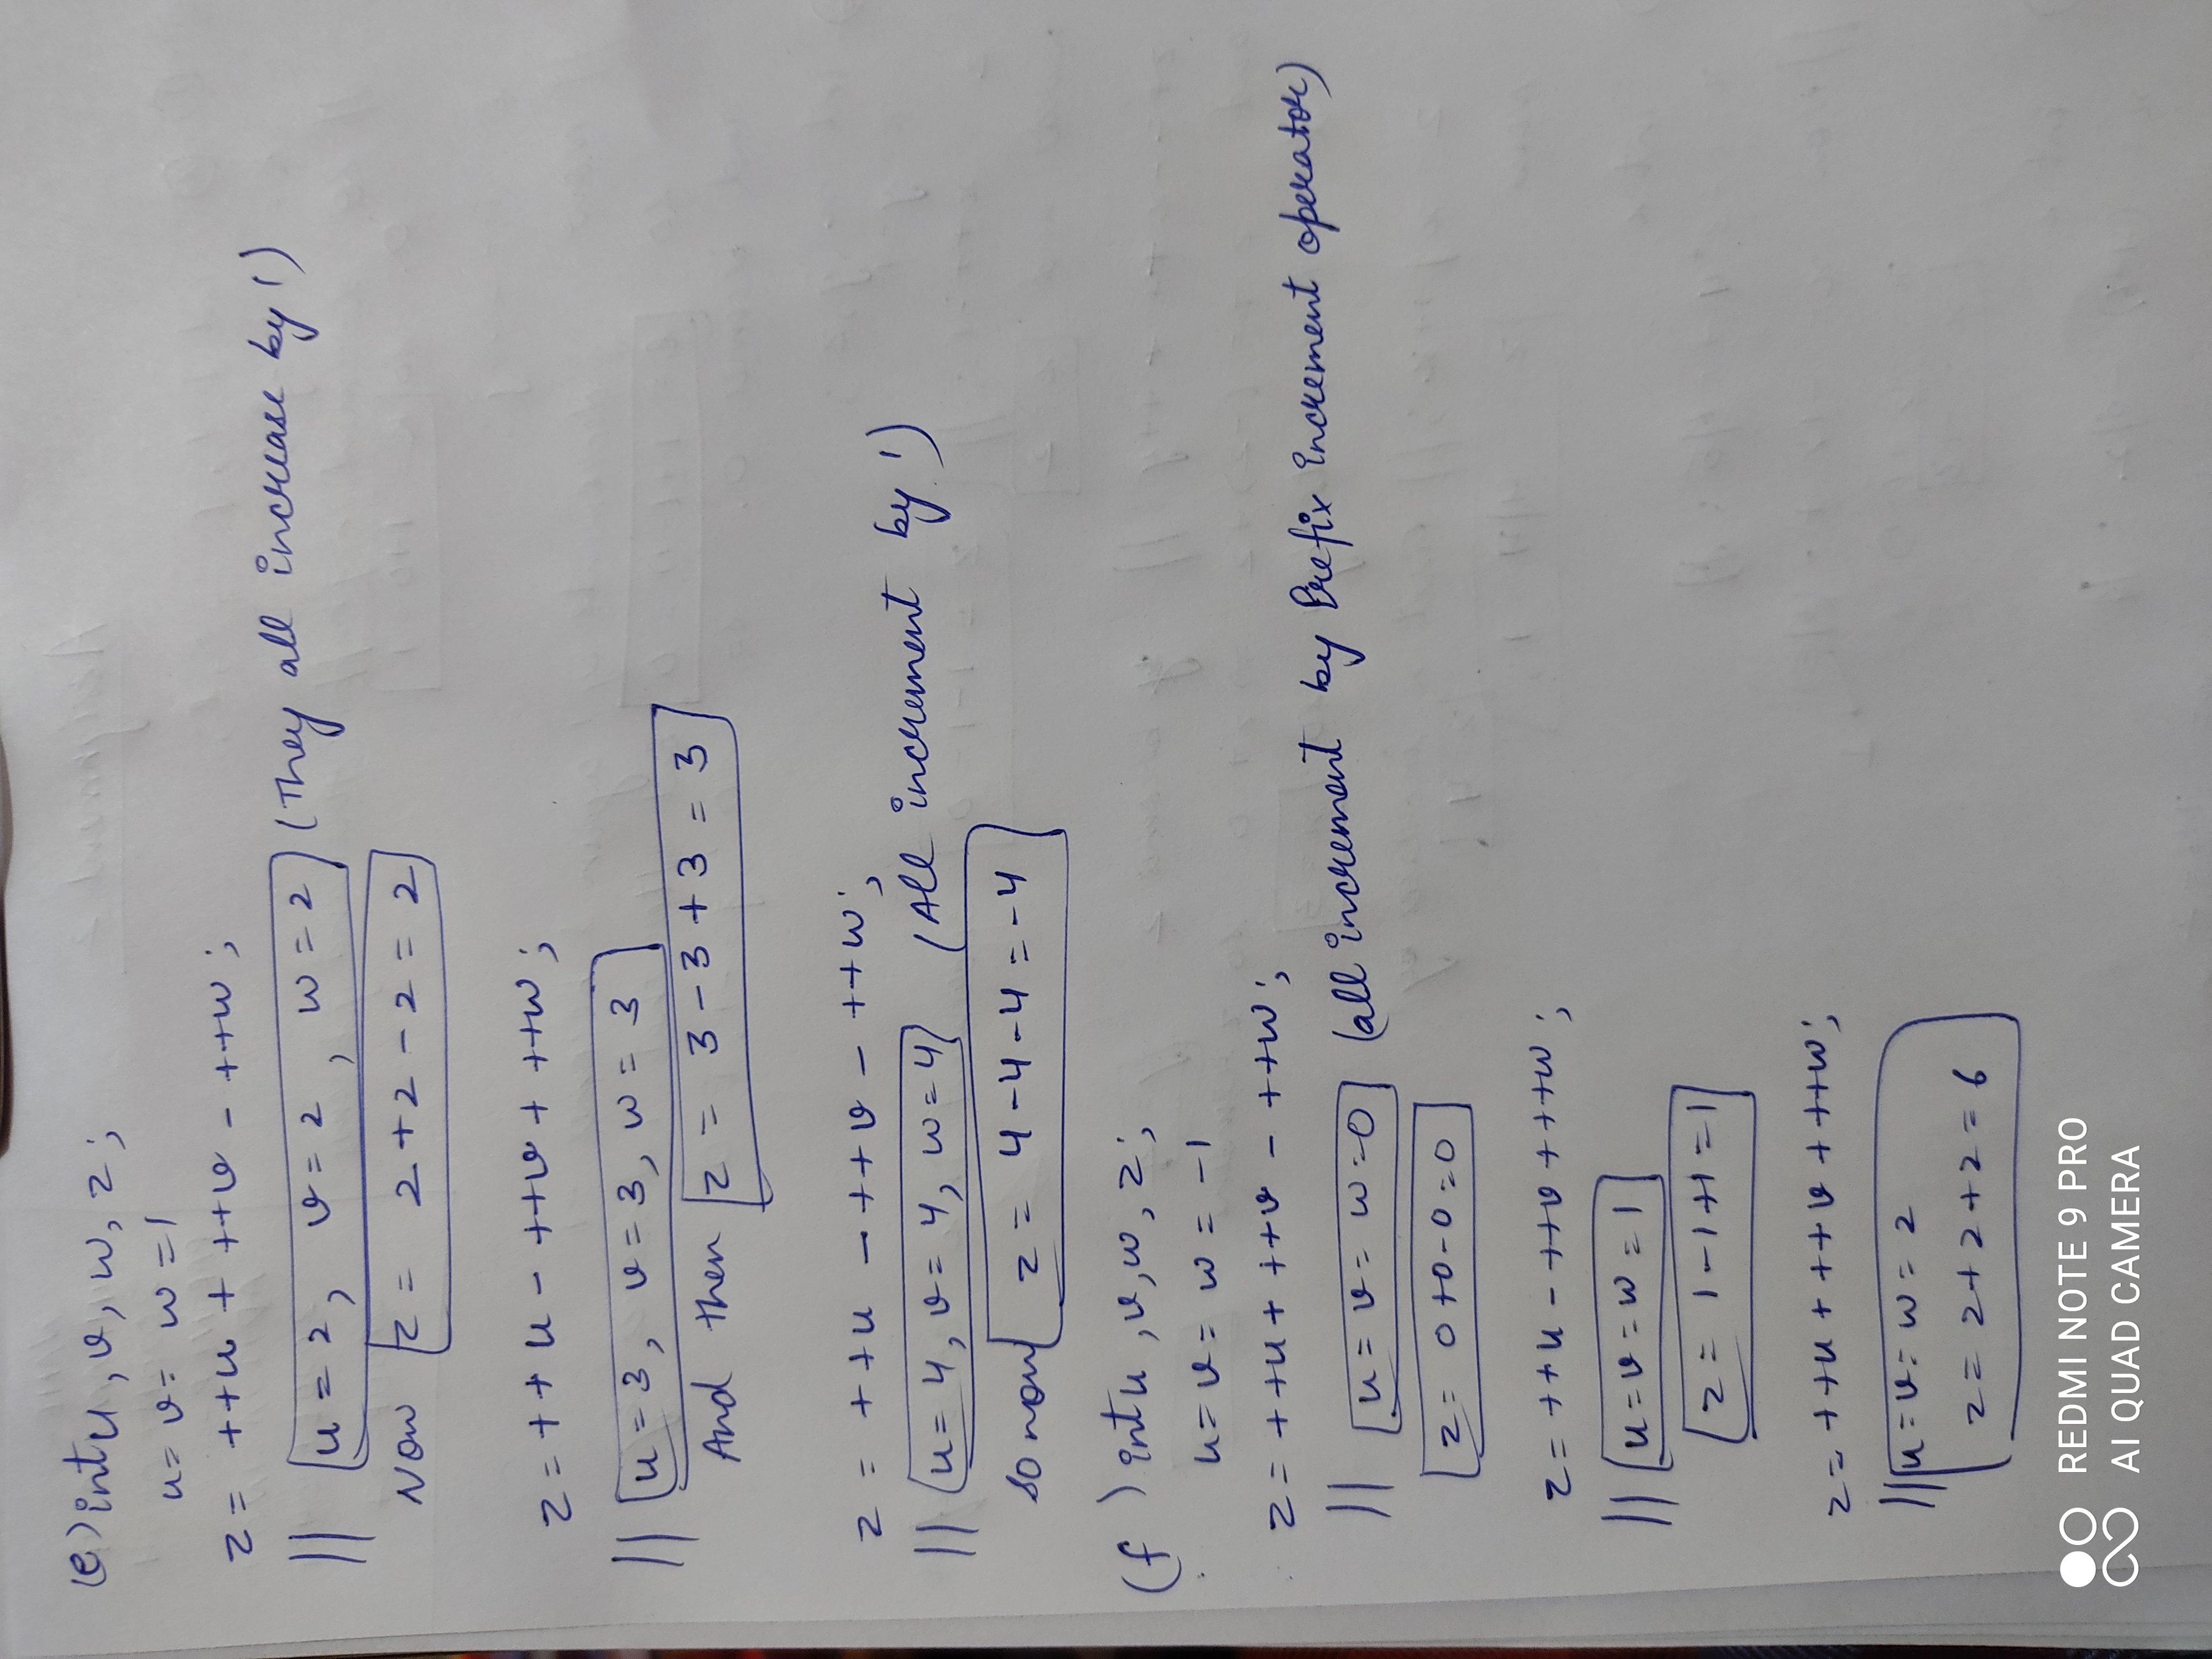 (e) int u, v, w, z;
u = v = w = 1
z = ++u + ++v - ++w ;
// u = 2, v = 2, w = 2 (They all increase by 1)
Now z = 2 + 2 - 2 = 2
z = ++u - ++v + ++w ;
// u = 3, v = 3, w = 3
And then z = 3 - 3 + 3 = 3
z = ++u - ++v - ++w ;
// u = 4, v = 4, w = 4 (All increment by 1)
so now z = 4 - 4 - 4 = -4
(f) int u, v, w, z;
u = v = w = -1
z = ++u + ++v - ++w ;
// u = v = w = 0 (all increment by Prefix increment operator)
z = 0 + 0 - 0 = 0
z = ++u - ++v + ++w ;
// u = v = w = 1
z = 1 - 1 + 1 = 1
z = ++u + ++v + ++w ;
// u = v = w = 2
z = 2 + 2 + 2 = 6
REDMI NOTE 9 PRO
AI QUAD CAMERA